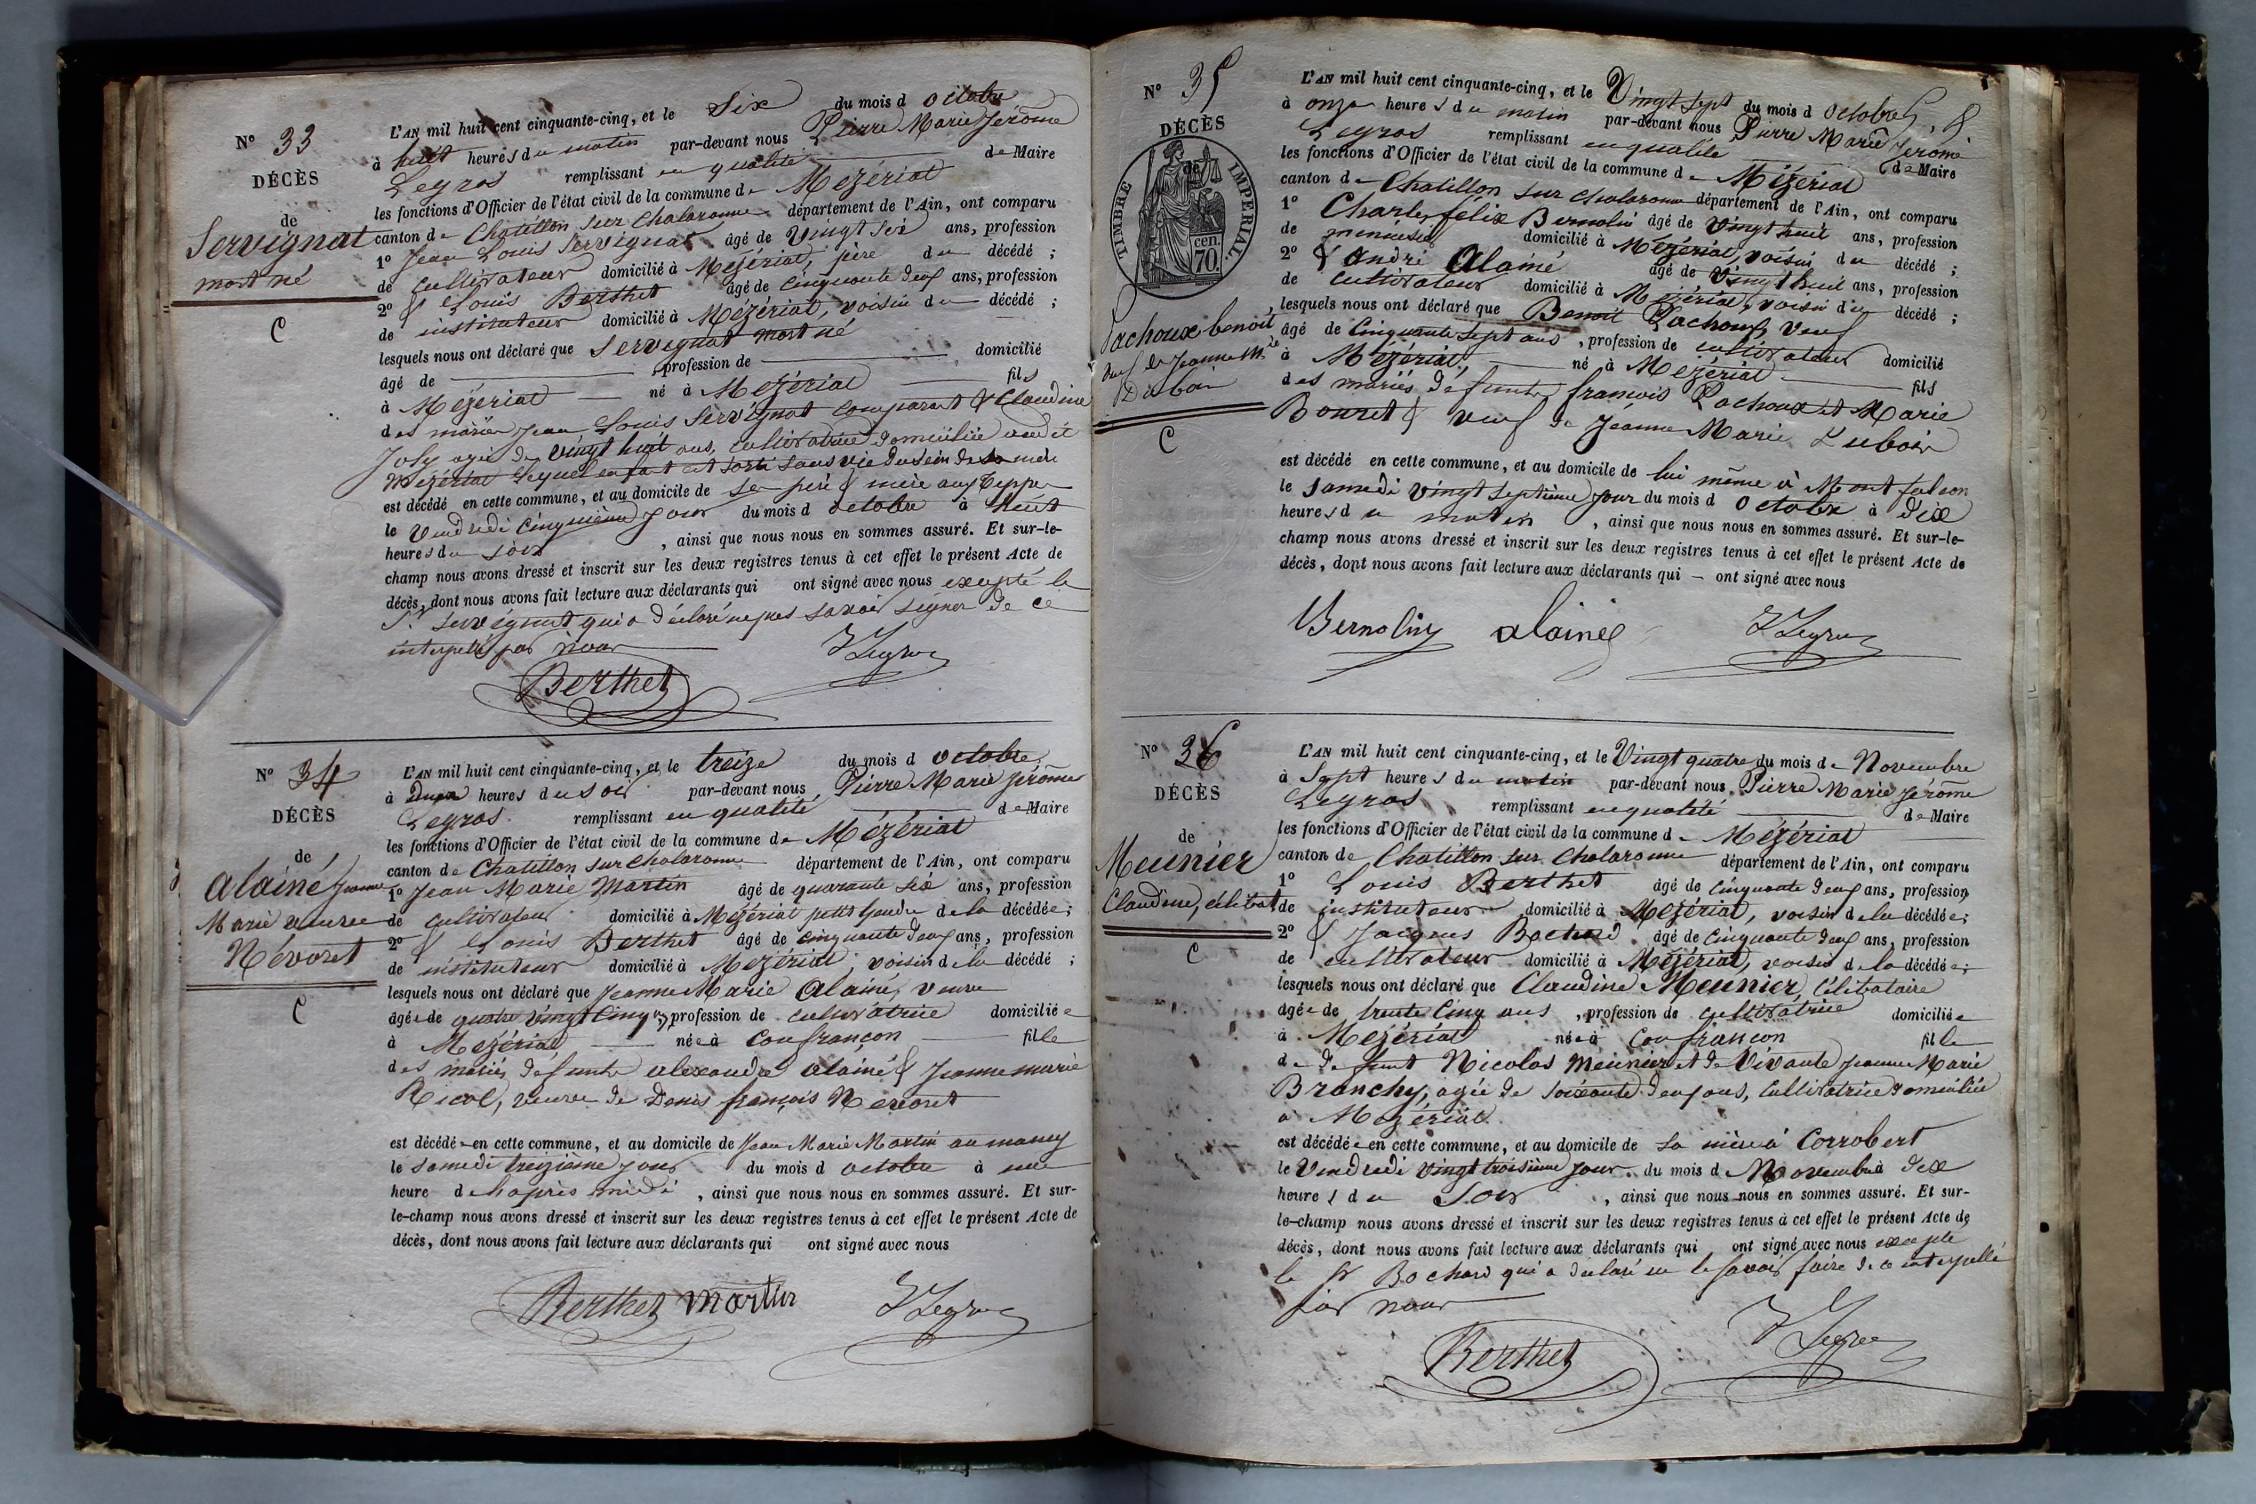 N° 33
DÉCÈS
de
Servignat
mort né
C
L'AN mil huit cent cinquante-cinq, et le Six du mois d octobre
à huit heures du matin par-devant nous Pierre Marie Jérôme
Legros remplissant en qualité de Maire
les fonctions d'Officier de l'état civil de la commune de Mézériat
canton de Chatillon sur Chalaronne département de l'Ain, ont comparu
1° Jean Louis Servignat âgé de Vingt six ans, profession
de cultivateur domicilié à Mézériat, père du décédé ;
2° & Louis Berthet âgé de cinquante deux ans, profession
de instituteur domicilié à Mézériat, voisin du décédé ;
lesquels nous ont déclaré que Servignat mort né
âgé de , profession de domicilié
à Mézériat né à Mézériat fils
des mariés Jean Louis Servignat comparant & Claudine
Joly agée de vingt huit ans, cultivatrice domiciliée audit
Mézériat lequel enfant est sorti sans vie du sein de sa mère
est décédé en cette commune, et au domicile de ses père & mère aux Teppes
le Vendredi cinquième jour du mois d octobre à huit
heures du soir , ainsi que nous nous en sommes assuré. Et sur-le-
champ nous avons dressé et inscrit sur les deux registres tenus à cet effet le présent Acte de
décès, dont nous avons fait lecture aux déclarants qui ont signé avec nous excepté le
Sr Servignat qui a déclaré ne pas savoir signer de ce
interpellé par nous
Berthet JLegros
N° 34
DÉCÈS
de
Alainé Jeanne
Marie veuve
Névoret
C
L'AN mil huit cent cinquante-cinq, et le treize du mois d octobre
à heures du soir par-devant nous Pierre Marie Jérôme
Legros remplissant en qualité de Maire
les fonctions d'Officier de l'état civil de la commune de Mézériat
canton de Chatillon sur Chalaronne département de l'Ain, ont comparu
1° Jean Marie Martin âgé de quarante six ans, profession
de cultivateur domicilié à Mézériat petit gendre de la décédée ;
2° & Louis Berthet âgé de cinquante deux ans, profession
de instituteur domicilié à Mézériat voisin de la décédé ;
lesquels nous ont déclaré que Jeanne Marie Alainé, veuve
âgée de quatre vingt cinq , profession de cultivatrice domiciliée
à Mézériat née à Confrançon fille
des mariés défunts alexandre alainé & Jeanne marie
Nicol, veuve de Denis françois Nevoret
est décédée en cette commune, et au domicile de Jean Marie Martin au
le Samedi treizième jour du mois d octobre à une
heure de l'après midi , ainsi que nous nous en sommes assuré. Et sur-
le-champ nous avons dressé et inscrit sur les deux registres tenus à cet effet le présent Acte de
décès, dont nous avons fait lecture aux déclarants qui ont signé avec nous
Berthet martin JLegros
N° 35
DÉCÈS
de
TIMBRE IMPERIAL
70 cen.
Pachoux benoit
veuf de Jeanne Mie
Duboin
C
L'AN mil huit cent cinquante-cinq, et le Vingt sept du mois d octobre
à onze heures du matin par-devant nous Pierre Marie Jérôme
Legros remplissant en qualité de Maire
les fonctions d'Officier de l'état civil de la commune de Mézériat
canton de Chatillon sur Chalaronne département de l'Ain, ont comparu
1° Charles félix Bernolin âgé de Vingt huit ans, profession
de menuisier domicilié à Mézériat, voisin du décédé ;
2° & André Alainé âgé de Vingt huit ans, profession
de cultivateur domicilié à Mézériat, voisin du décédé ;
lesquels nous ont déclaré que Benoit Pachoux, veuf
âgé de Cinquante sept ans , profession de cultivateur domicilié
à Mézériat né à Mézériat fils
des mariés défunts françois Pachoux et Marie
Bonnet & veuf de Jeanne Marie Duboin
est décédé en cette commune, et au domicile de lui même à Montfalcon
le Samedi vingt septième jour du mois d octobre à dix
heures du matin , ainsi que nous nous en sommes assuré. Et sur-le-
champ nous avons dressé et inscrit sur les deux registres tenus à cet effet le présent Acte de
décès, dont nous avons fait lecture aux déclarants qui — ont signé avec nous
Bernolin alainé JLegros
N° 36
DÉCÈS
de
Meunier
Claudine, célibat
C
L'AN mil huit cent cinquante-cinq, et le Vingt quatre du mois de Novembre
à Sept heures du matin par-devant nous Pierre Marie Jérôme
Legros remplissant en qualité de Maire
les fonctions d'Officier de l'état civil de la commune de Mézériat
canton de Chatillon sur Chalaronne département de l'Ain, ont comparu
1° Louis Berthet âgé de cinquante deux ans, profession
de instituteur domicilié à Mézériat, voisin de la décédée ;
2° & Jacques Bochard âgé de cinquante deux ans, profession
de cultivateur domicilié à Mézériat, voisin de la décédée ;
lesquels nous ont déclaré que Claudine Meunier célibataire
âgée de trente cinq ans , profession de cultivatrice domiciliée
à Mézériat née à Confrançon fille
de défunt Nicolas Meunier et de vivante Jeanne Marie
Branchy, agée de soixante deux ans, cultivatrice domiciliée
à Mézériat
est décédée en cette commune, et au domicile de sa mère à Corrobert
le Vendredi vingt troisième jour du mois de Novembre à dix
heures du Soir , ainsi que nous nous en sommes assuré. Et sur-
le-champ nous avons dressé et inscrit sur les deux registres tenus à cet effet le présent Acte de
décès, dont nous avons fait lecture aux déclarants qui ont signé avec nous excepté
le Sr Bochard qui a déclaré ne le savoir faire de ce interpellé
par nous
Berthet JLegros